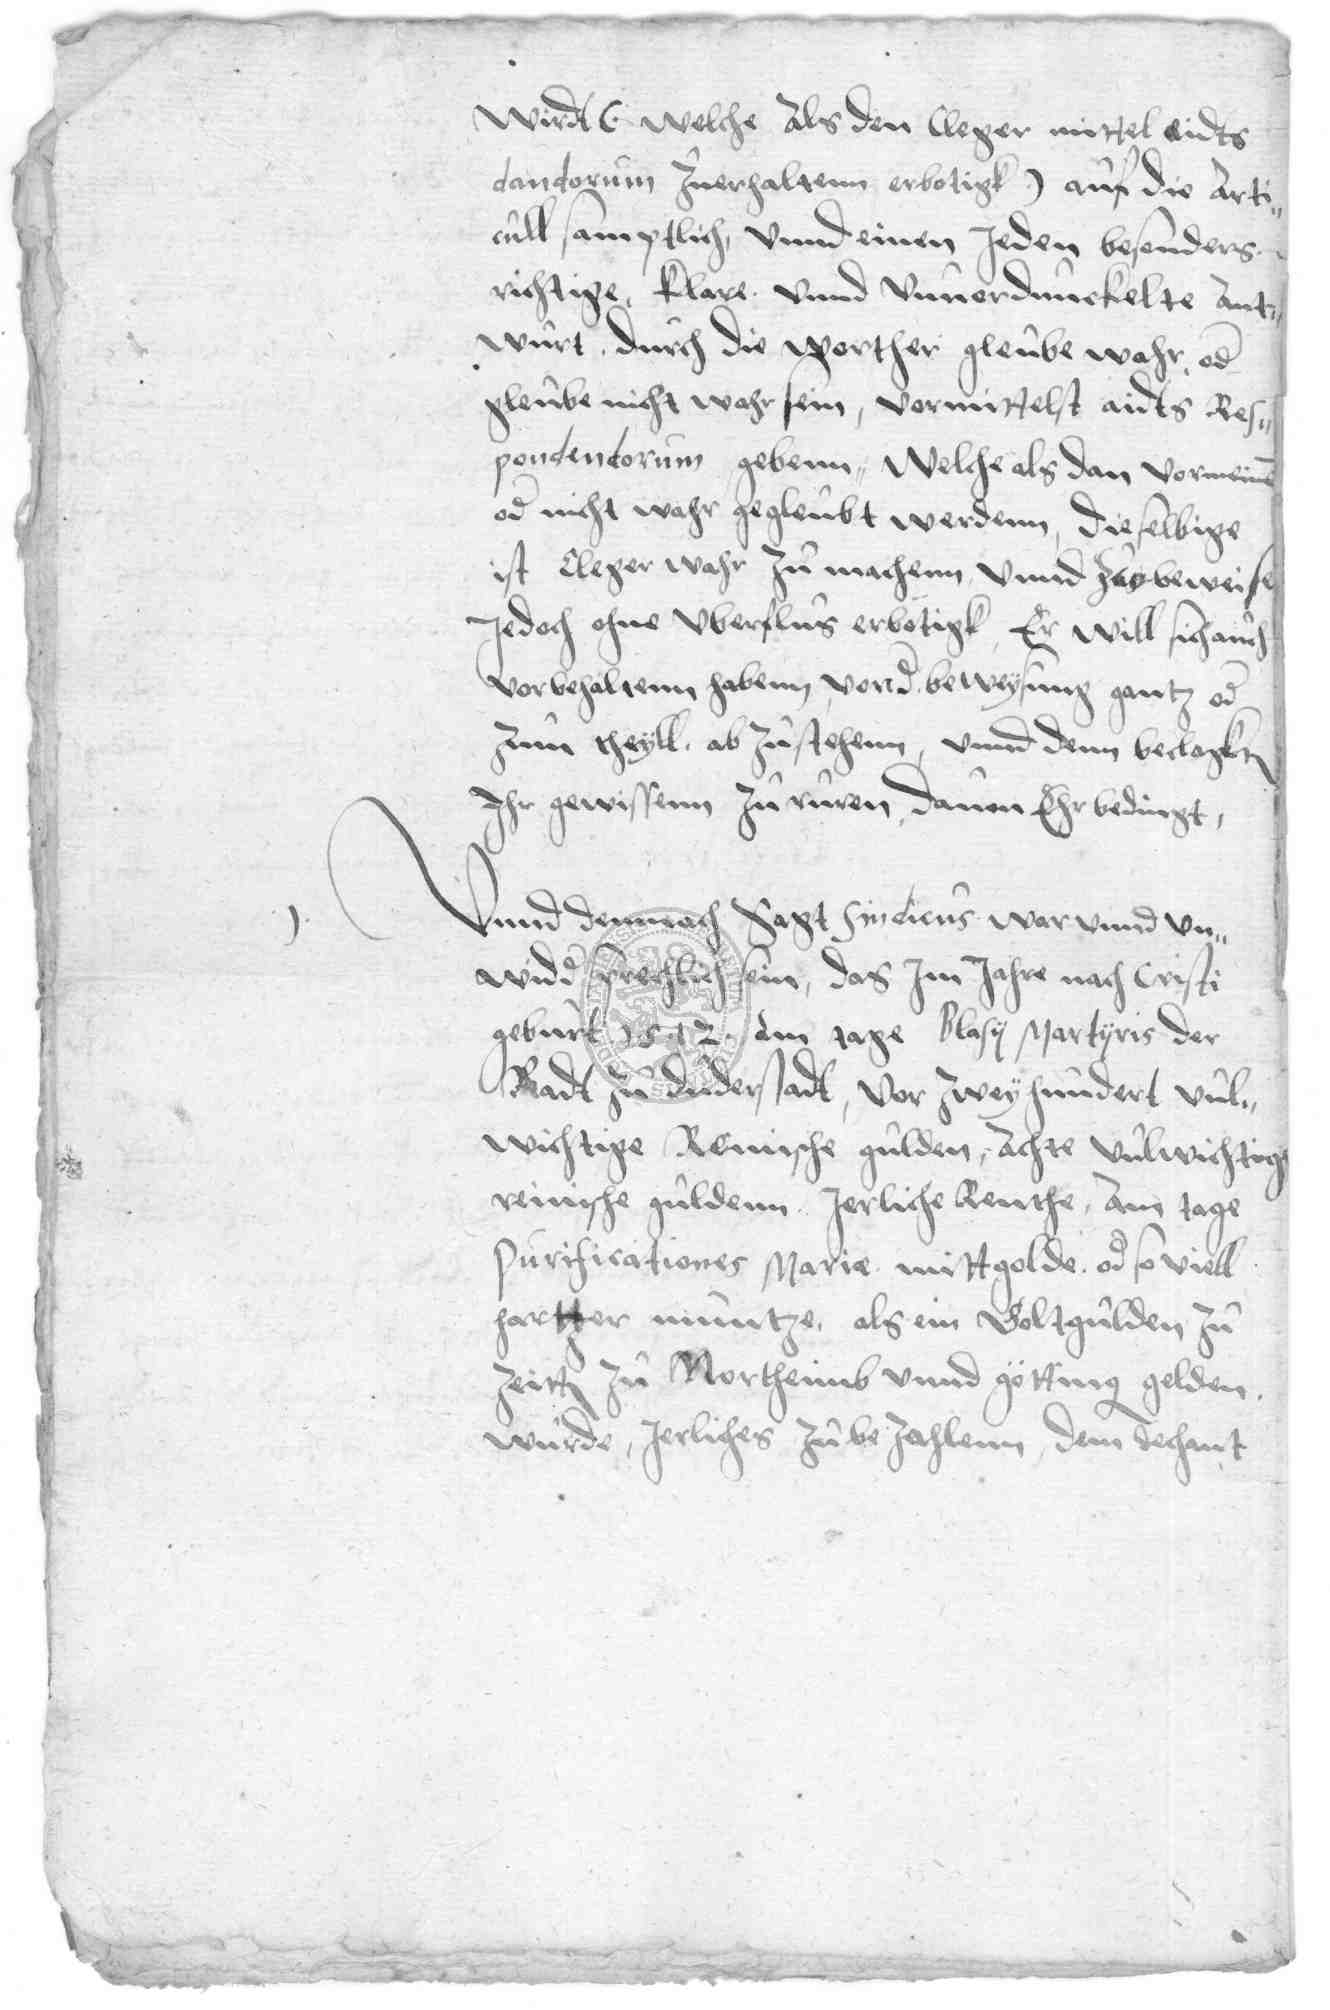 wirdt (welche Als den Cleger mittel eidts
dandorum Zuerhaltenn erbotigk) auf die Arti„
cull samptlich, Vnnd einen Jeden besonders
richtige, klare Vnnd Vnuerdunckelte Ant„
wurt durch die Worther gleube wahr, od
gleube nicht wahr sein, Vormittelst aidts Res„
pondendorum gebenn, Welche als dan Vorneint
od nicht wahr gegleubt werdenn, dieselbige
ist Cleger wahr Zu machenn Vnnd Zu beweise
Jedoch ohne Vberflus erbötigk, Er will sich auch
Vorbehaltenn habenn, von d beweysung gantz od
Zum theyll ab Zustehenn, Vnnd denn beclagktn
Ihr gewissenn Zu ruren, dauon Ehr bedingt,
1. Vnnd demnach Sagt Sindicus war vnnd vn„
widdsprechlich sein, das Im Jahre nach Cristi
geburt 1512 Am tage Blasÿ Martÿris der
Radt Zu duderstadt, Vor Zweÿhundert Vul„
wichtige Reinische gulden, Achte Vulwichtige
reinische guldenn Jerliche Renthe, Am tage
Purificationes Marie mitt golde od so viell
hartter muntze, als ein Goltgulden Zu
Zeittn Zu Northeimb vnnd götting gelden
wurde, Jerliches Zu beZahlenn, dem dechant